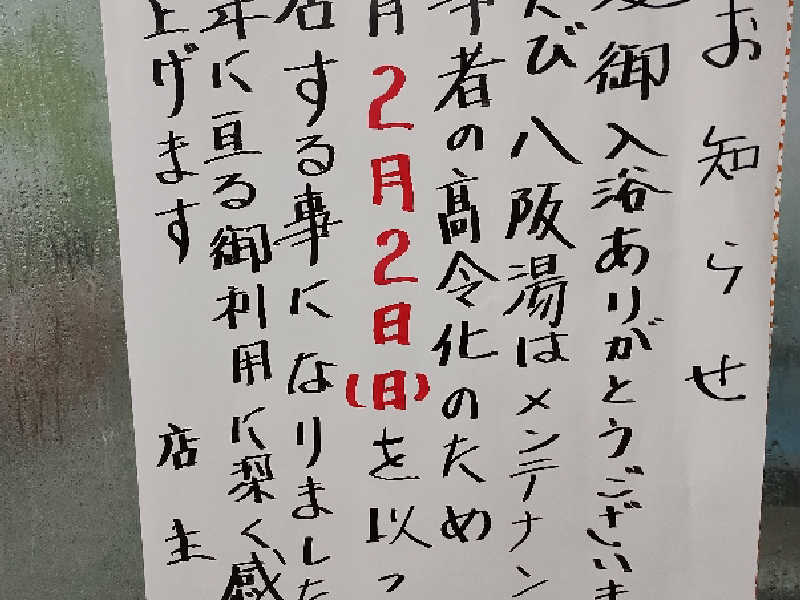 お知らせ
御入浴ありがとうございま
び八阪湯はメンテナン
者の高令化のため
月2月2日(日)を以っ
店する事になりました
年に亘る御利用に深く感
上げます
店主